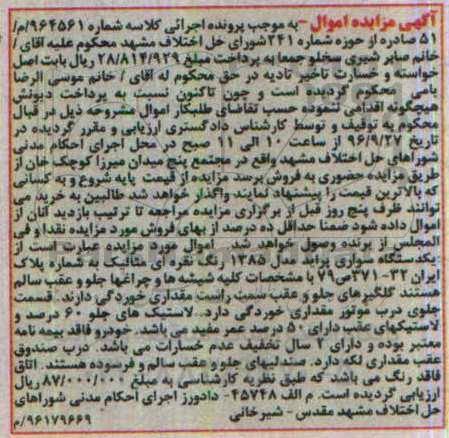 آگهی مزایده اموال - به موجب پرونده اجرائی کلاسه شماره ۹۶۴۵۶۱/م/
۵۱ صادره از حوزه شماره ۳۴۱شورای حل اختلاف مشهد محکوم علیه آقای /
خانم صابر شیری سخلو جمعا به پرداخت مبلغ ۲۸/۸۱۴/۹۲۹ ریال بابت اصل
خواسته و خسارت تاخیر تادیه در حق محکوم له آقای / خانم موسی الرضا
یامی محکوم گردیده است و چون تاکنون نسبت به پرداخت دیونش
هیچگونه اقدامی ننموده حسب تقاضای طلبکار اموال مشروحه ذیل در قبال
محکوم به توقیف و توسط کارشناس دادگستری ارزیابی و مقرر گردیده در
تاریخ ۹۶/۹/۲۷ از ساعت ۱۰ الی ۱۱ صبح در محل اجرای احکام مدنی
شوراهای حل اختلاف مشهد واقع در مجتمع پنج میدان میرزا کوچک خان از
طریق مزایده حضوری به فروش برسد مزایده از قیمت پایه شروع و به کسانی
که بالاترین قیمت را پیشنهاد نمایند واگذار خواهد شد طالبین به خرید می
توانند ظرف پنج روز قبل از برگزاری مزایده مراجعه تا ترتیب بازدید آنان از
اموال داده شود ضمنا حداقل ده درصد از بهای فروش مورد مزایده نقدا و فی
المجلس از برنده وصول خواهد شد. اموال مورد مزایده عبارت است از
یکدستگاه سواری پراید مدل ۱۳۸۵ رنگ نقره ای متالیک به شماره پلاک
ایران ۳۲- ۳۷۱ص۷۹ با مشخصات کلیه شیشه ها و چراغها جلو و عقب سالم
هستند گلگیرهای جلو و عقب سمت راست مقداری خوردگی دارند. قسمت
جلوی درب موتور مقداری خوردگی دارد. لاستیک های جلو ۶۰ درصد و
لاستیکهای عقب دارای ۵۰ درصد عمر مفید می باشد. خودرو فاقد بیمه نامه
معتبر بوده و دارای ۲ سال تخفیف عدم خسارات می باشد. درب صندوق
عقب مقداری لکه دارد. صندلیهای جلو و عقب سالم و فرسوده هستند. اتاق
فاقد رنگ می باشد که طبق نظریه کارشناسی به مبلغ ۸۷/۰۰۰/۰۰۰ ریال
ارزیابی گردیده است. م الف ۴۵۷۴۸- دادورز اجرای احکام مدنی شوراهای
حل اختلاف مشهد مقدس - شیرخانی
۹۶۱۷۹۶۶۹/م